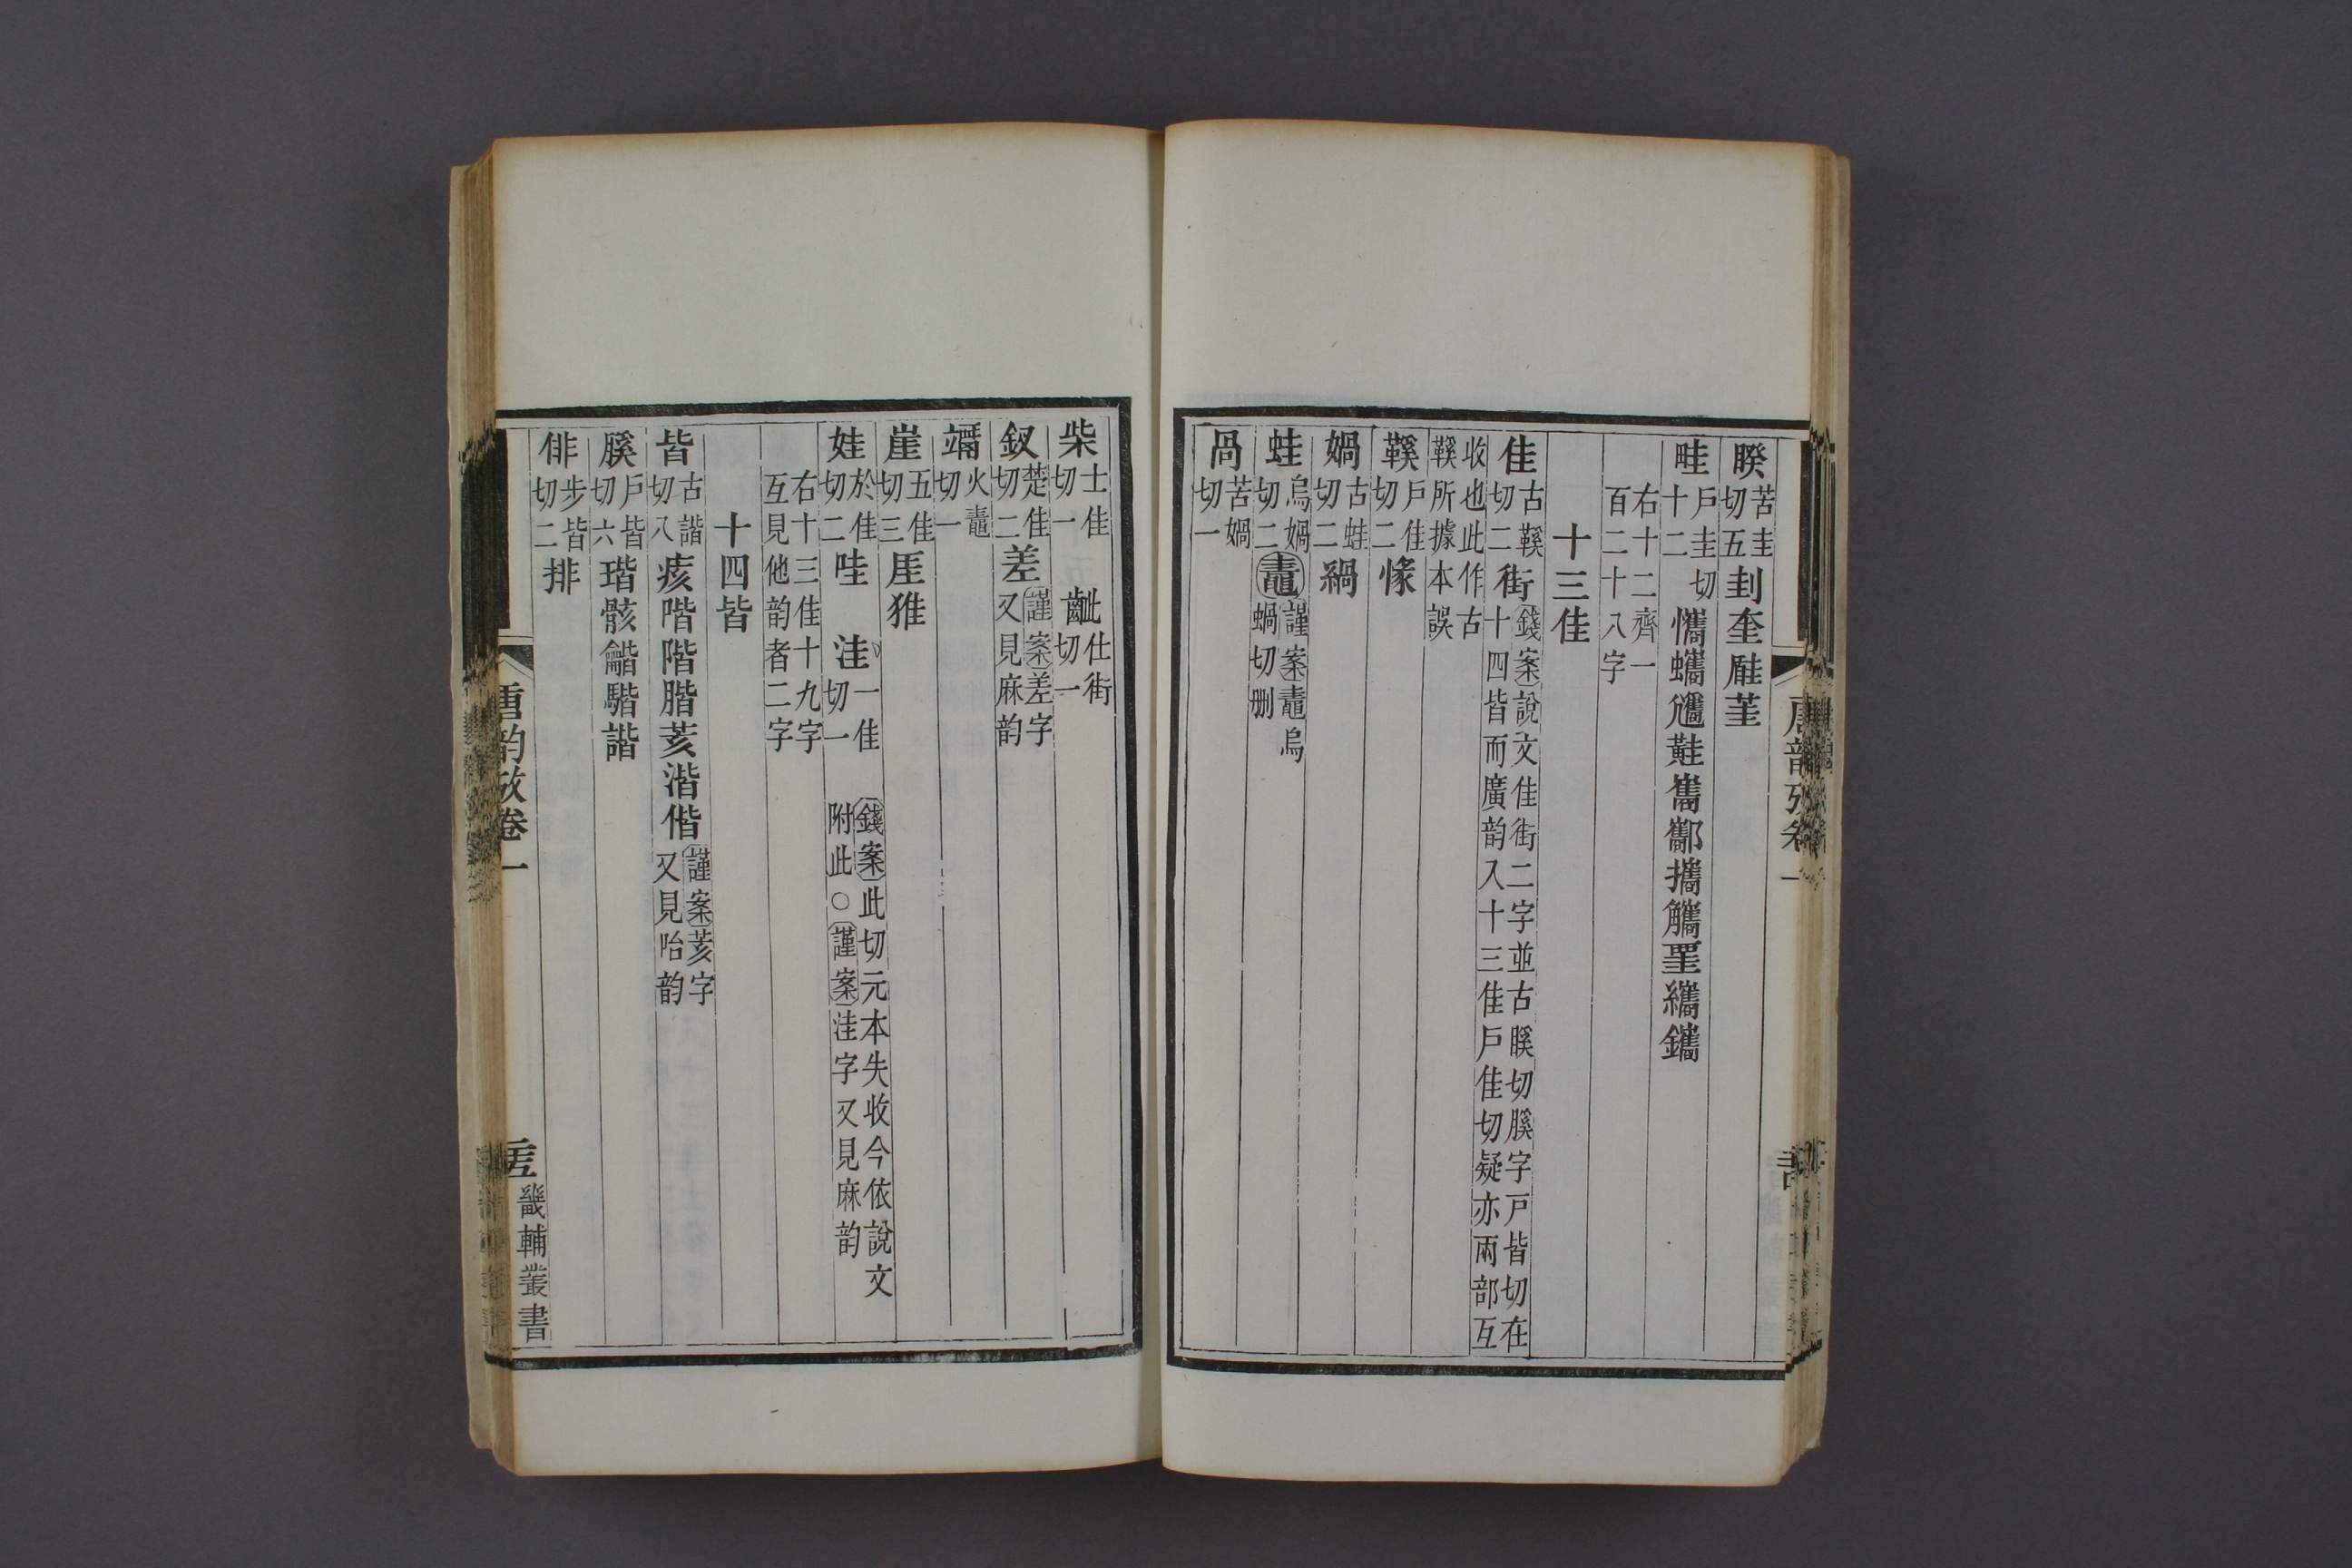 睽苦圭切五刲奎䳏茥
畦戶圭切十二㦎蠵𡰢黊巂酅攜觿𦋅纗鑴
右十二齊一百二十八字
十三佳
佳古鞵切二街錢案說文佳街二字並古膎切膎字戶皆切在十四皆而廣韵入十三佳戶佳切疑亦兩部互
收也此作古鞵所據本誤
鞵戶佳切二㥟
媧古蛙切二緺
蛙烏媧切二鼃謹案鼃烏蝸切删
咼苦媧切一
唐韵攷卷一
柴士佳切一 齜仕街切一
釵楚佳切二差謹案差字又見麻韵
竵火鼃切一
崖五佳切三厓䧹
娃於佳切二哇 洼一佳切一 錢案此切元本失收今依說文附此○謹案洼字又見麻韵
右十三佳十九字互見他韵者二字
十四皆
皆古諧切八痎喈階腊荄湝偕謹案荄字又見咍韵
膎戶皆切六瑎骸龤騩諧
俳步皆切二排
唐韵攷卷一
畿輔叢書